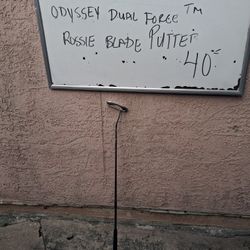 ODYSSEY DUAL FORCE TM
ROSSIE BLADE PUTTER
40"